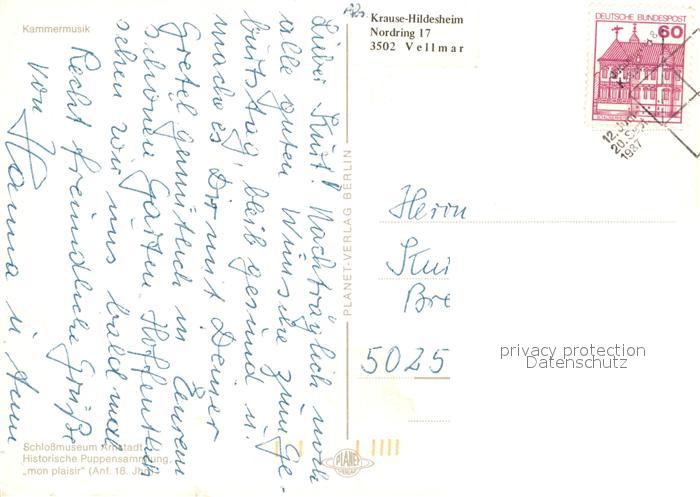 Kammermusik
Abs.
Krause-Hildesheim
Nordring 17
3502 Vellmar
DEUTSCHE BUNDESPOST
60
12. Juni
20. Sept.
1987
Lieber Kurt! Nachträglich noch
alle guten Wünsche zum Ge-
burtstag, bleib gesund u.
mach es Dir mit Deiner
Gretel gemütlich in Eurem
schönen Garten. Hoffentlich
sehen wir uns bald mal
Recht freundliche Grüße
von Hanna u.
PLANET-VERLAG BERLIN
Herrn
Kur
Bre
5025
privacy protection
Datenschutz
Schloßmuseum Arnstadt
Historische Puppensammlung
„mon plaisir" (Anf. 18. Jh.)
PLANET